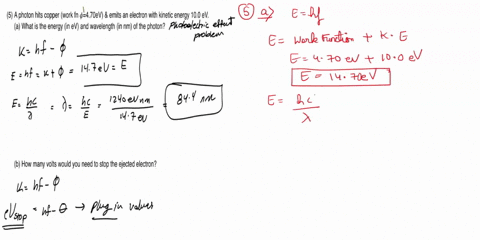 (5) A photon hits copper (work fn φ=4.70eV) & emits an electron with kinetic energy 10.0 eV.
(a) What is the energy (in eV) and wavelength (in nm) of the photon?
Photoelectric effect
problem
K = hf - φ
E = hf = K + φ = 14.7 eV = E
E = hc/λ = λ = hc/E = 1240 eV nm / 14.7 eV = 84.4 nm
(b) How many volts would you need to stop the ejected electron?
K = hf - φ
eVstop = hf - θ → plug in values
(5) a) E = hf
E = Work Function + K.E
E = 4.70 eV + 10.0 eV
E = 14.70eV
E = hc/λ